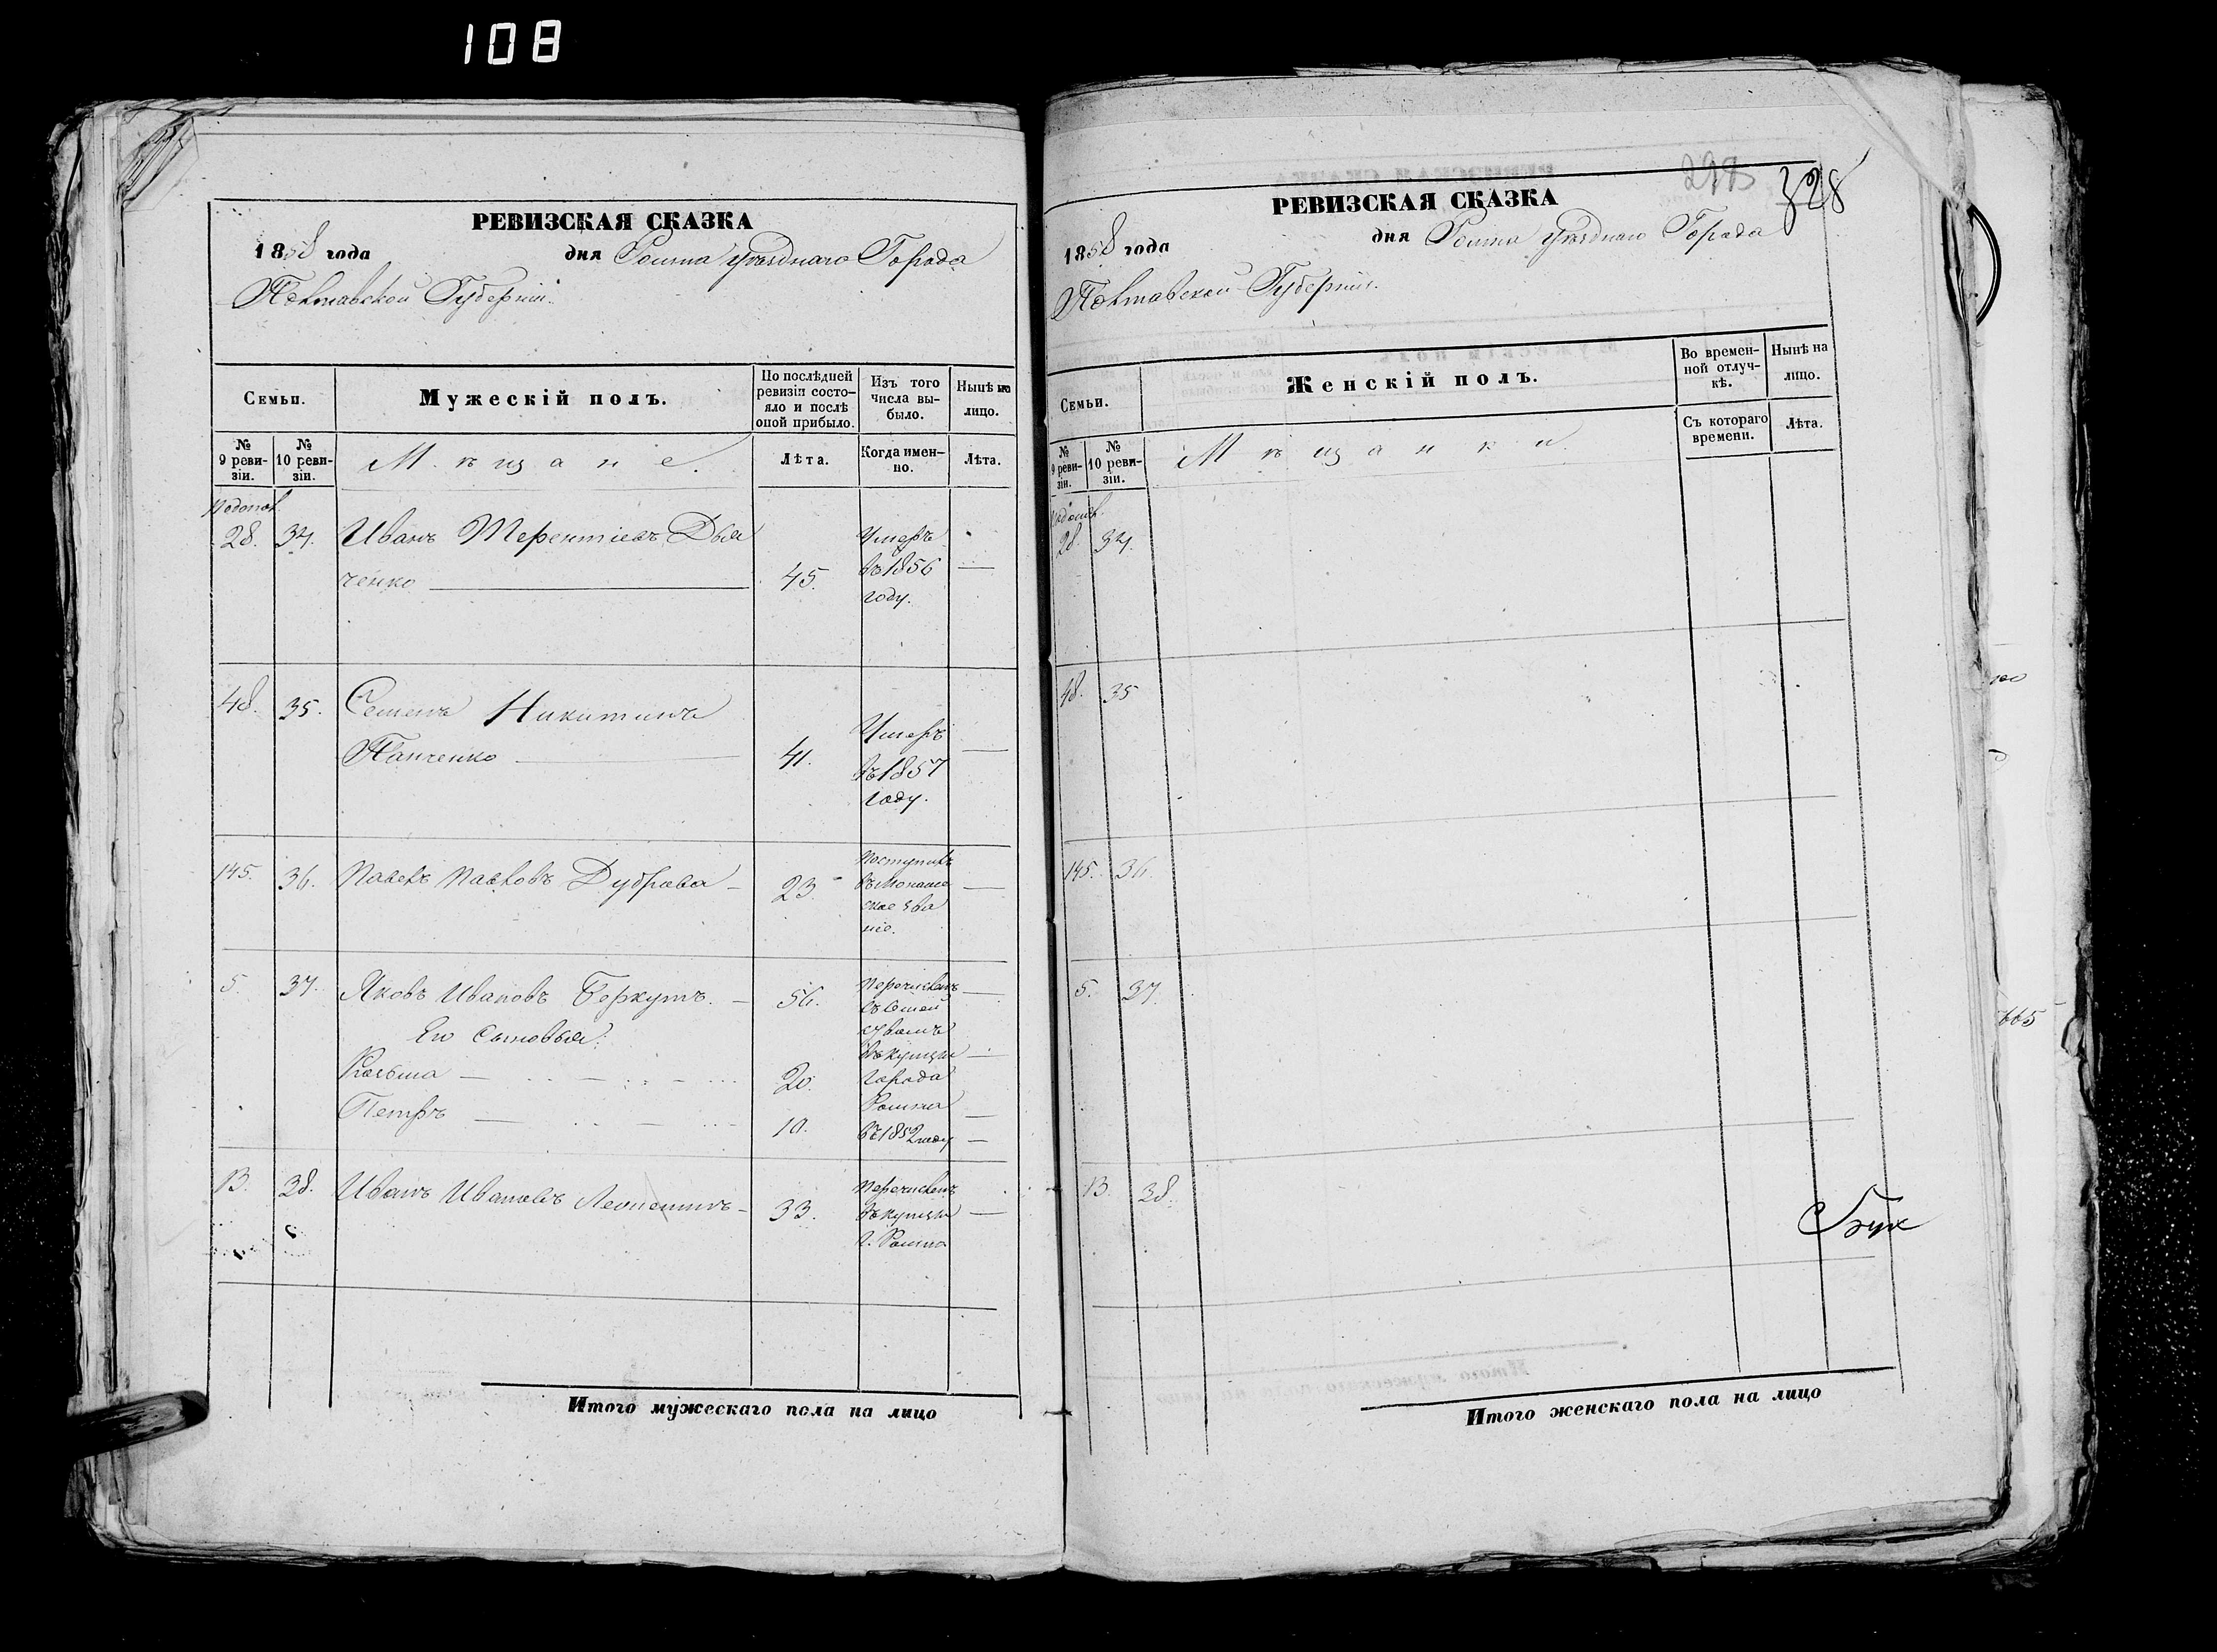 108
РЕВИЗСКАЯ СКАЗКА
1858 года дня Ромна уѣзднаго Города
Полтавской Губерніи.
Семьи.
Мужескій полъ.
По послѣдней ревизіи состояло и послѣ оной прибыло.
Изъ того числа выбыло.
Нынѣ на лицо.
№ 9 ревизіи.
№ 10 ревизіи.
Мѣщане.
Лѣта.
Когда именно.
Лѣта.
28. 34. Иванъ Терентіевъ Дья
ченко 45. Умеръ въ 1856 году. —
48. 35. Семенъ Никитинъ
Панченко 41. Умеръ въ 1857 году. —
145. 36. Павелъ Павловъ Дуброва — 23. Поступилъ въ Монашеское званіе. —
5. 37. Яковъ Ивановъ Беркутъ. — 56. Перечисленъ —
Его Сыновья:
въ купцы —
Козьма — 20. города
Петръ — 10. Ромна —
въ 1852 году —
13. 38. Иванъ Ивановъ — 33. Перечисленъ
въ купцы —
г. Ромна
Итого мужескаго пола на лицо
328
РЕВИЗСКАЯ СКАЗКА
1858 года дня Ромна уѣзднаго Города
Полтавской Губерніи.
Семьи.
Женскій полъ.
Во временной отлучкѣ.
Нынѣ на лицо.
№ 9 ревизіи.
№ 10 ревизіи.
Мѣщанки.
Съ котораго времени.
Лѣта.
28. 34.
48. 35
145. 36.
5. 37.
13. 38.
Итого женскаго пола на лицо